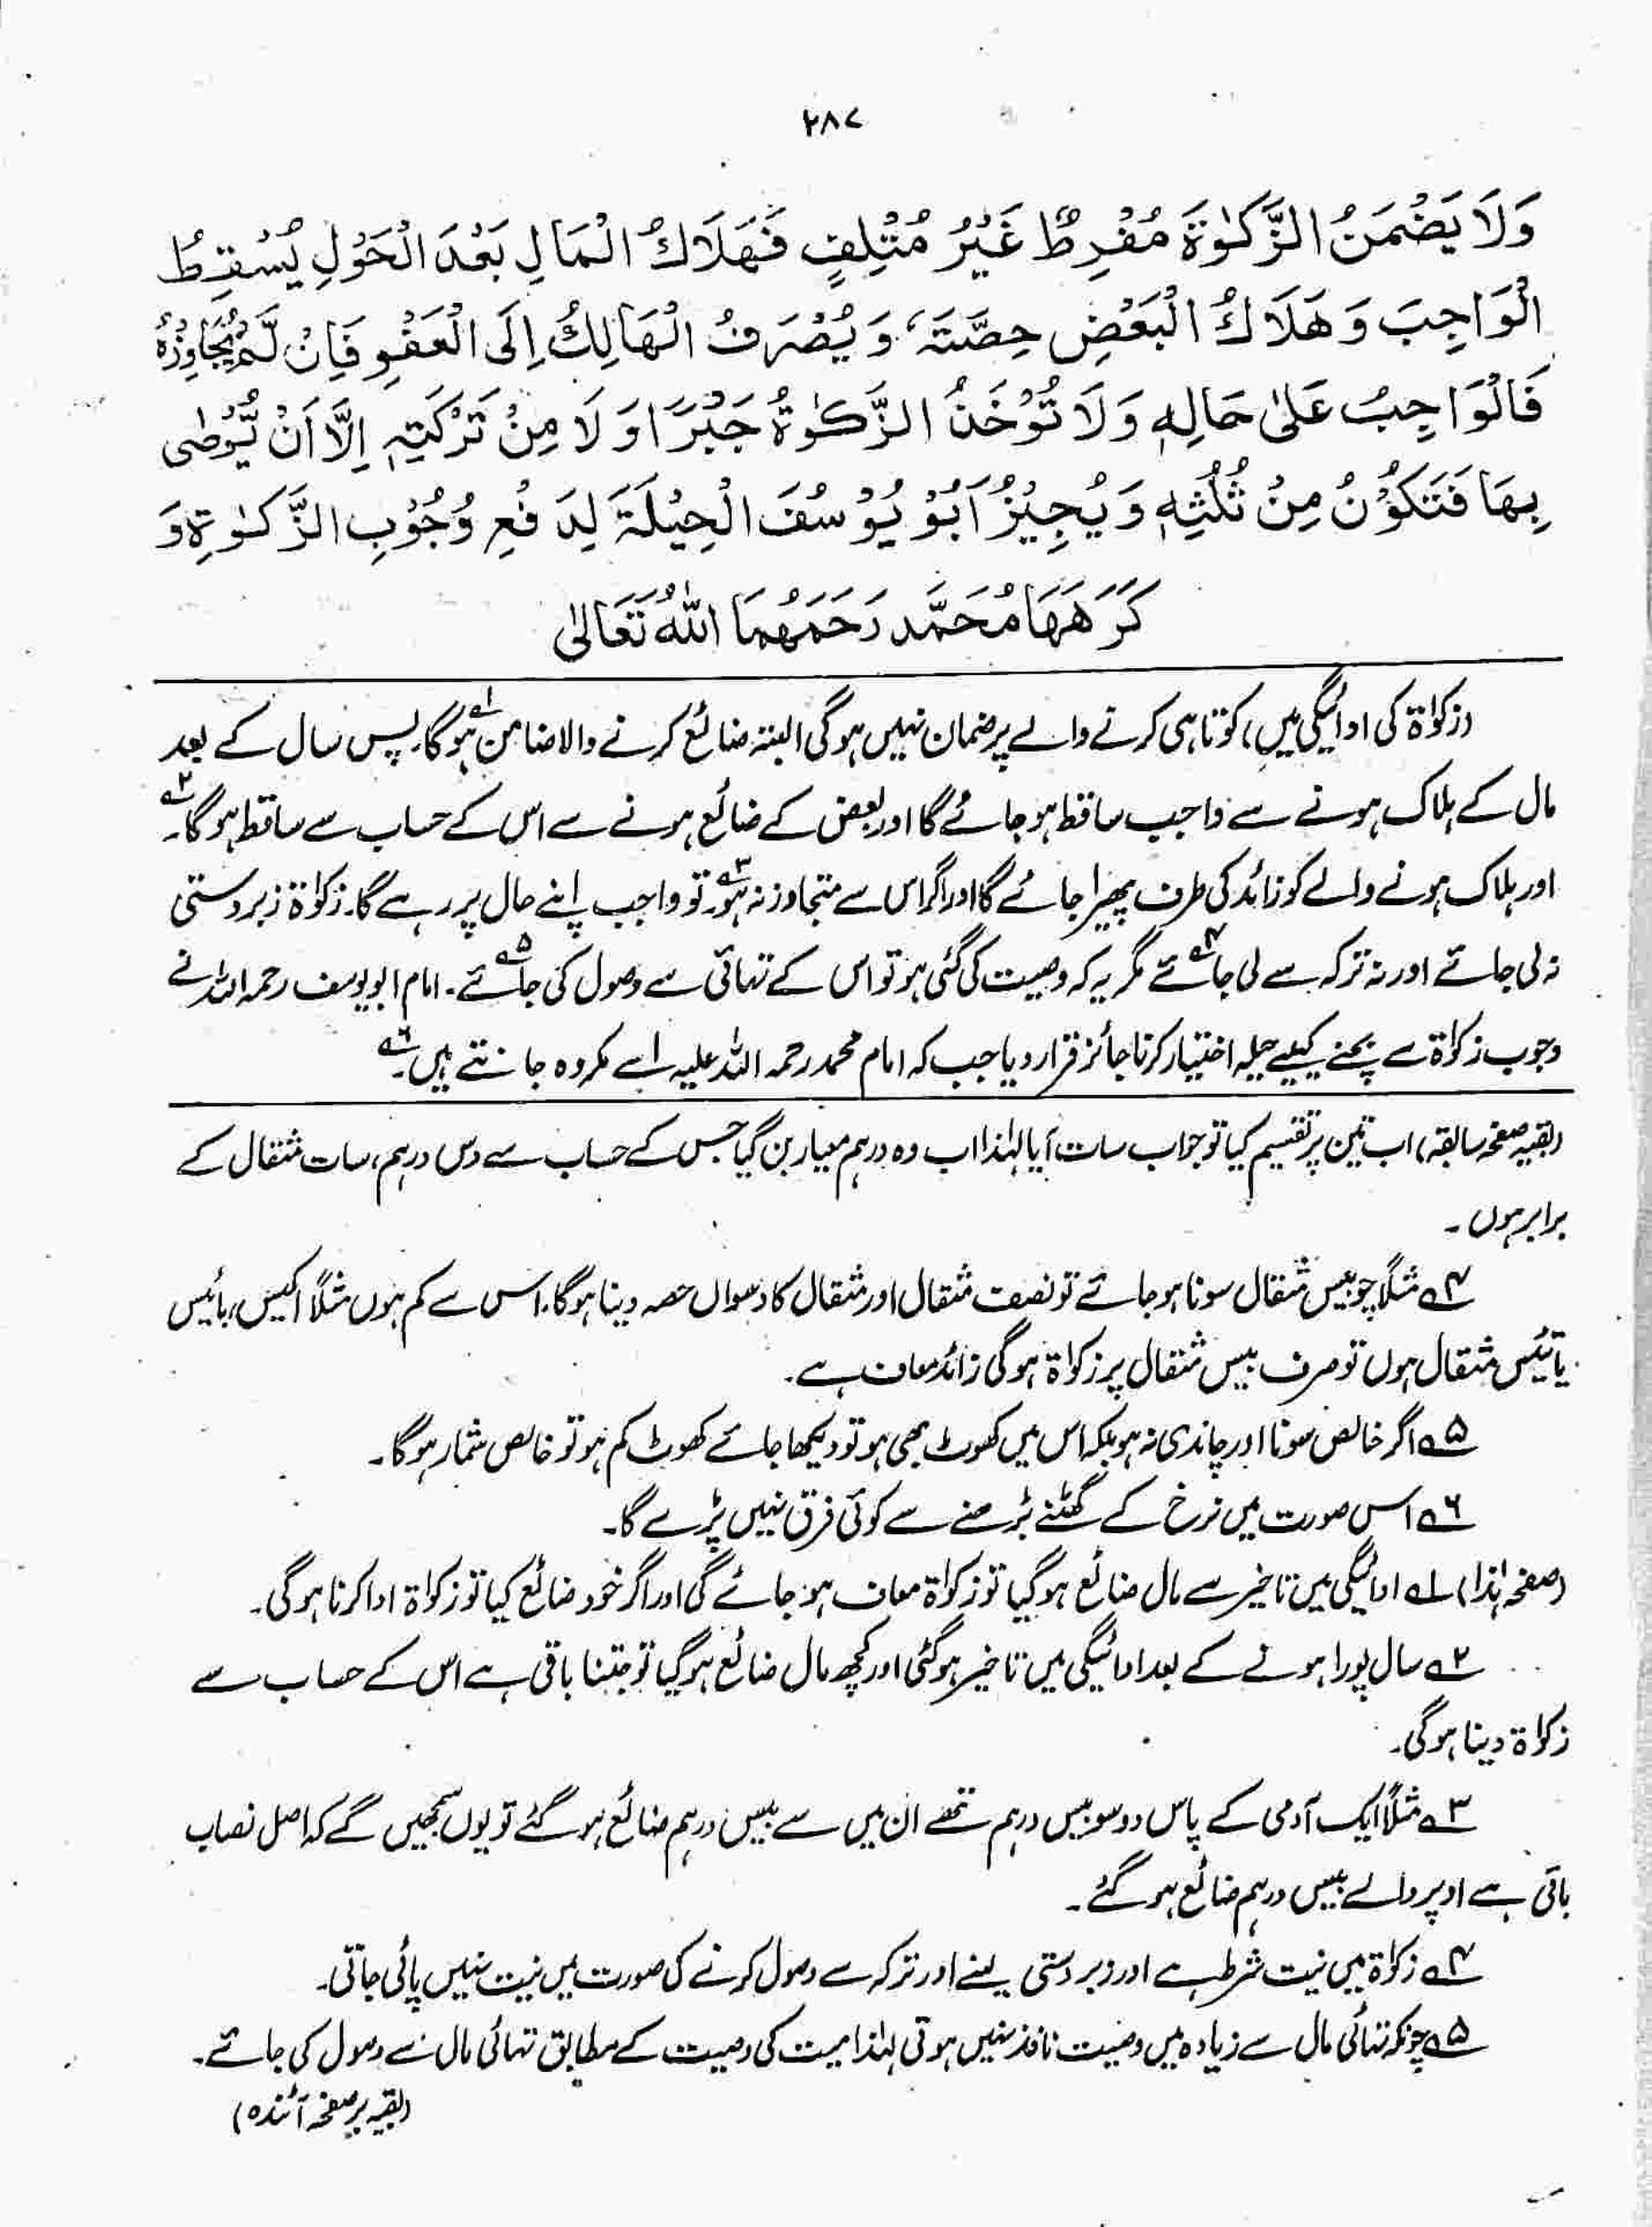 ۲۸۷
وَلَا يَضْمَنُ الزَّكٰوةَ مُفْرِطٌ غَيْرُ مُتْلِفٍ فَهَلَاكُ الْمَالِ بَعْدَ الْحَوْلِ يُسْقِطُ
الْوَاجِبَ وَهَلَاكُ الْبَعْضِ حِصَّتَهٗ وَيُصْرَفُ الْهَالِكُ اِلَى الْعَفْوِ فَاِنْ لَّمْ يُجَاوِزْهُ
فَالْوَاجِبُ عَلٰى حَالِهٖ وَلَا تُؤْخَذُ الزَّكٰوةُ جَبْرًا وَلَا مِنْ تَرْكَتِهٖ اِلَّا اَنْ يُّوْصٰى
بِهَا فَتَكُوْنُ مِنْ ثُلُثِهٖ وَيُجِيْزُ اَبُوْ يُوْسُفَ الْحِيْلَةَ لِدَفْعِ وُجُوْبِ الزَّكٰوةِ وَ
كَرِهَهَا مُحَمَّد رَحَمَهُمَا اللّٰهُ تَعَالٰى
(زکوٰۃ کی ادائیگی میں) کوتاہی کرنے والے پر ضمان نہیں ہوگی البتہ ضائع کرنے والا ضامن ہوگا۱؎ پس سال کے بعد
مال کے ہلاک ہونے سے واجب ساقط ہو جائے گا اور بعض کے ضائع ہونے سے اس کے حساب سے ساقط ہوگا۲؎۔
اور ہلاک ہونے والے کو زائد کی طرف پھیرا جائے گا اور اگر اس سے متجاوز نہ ہو۳؎ تو واجب اپنے حال پر رہے گا۔ زکوٰۃ زبردستی
نہ لی جائے اور نہ ترکہ سے لی جائے۴؎ مگر یہ کہ وصیت کی گئی ہو تو اس کے تہائی سے وصول کی جائے۵؎۔ امام ابویوسف رحمہ اللہ نے
وجوب زکوٰۃ سے بچنے کیلئے حیلہ اختیار کرنا جائز قرار دیا جب کہ امام محمد رحمہ اللہ علیہ اسے مکروہ جانتے ہیں۶؎۔
(بقیہ صفحہ سابقہ) اب تین پر تقسیم کیا تو جواب سات آیا لہٰذا اب وہ درہم معیار بن گیا جس کے حساب سے دس درہم، سات مثقال کے
برابر ہوں۔
۴؎ مثلاً چوبیس مثقال سونا ہو جائے تو نصف مثقال اور مثقال کا دسواں حصہ دینا ہوگا۔ اس سے کم ہوں مثلاً اکیس، بائیس
یا تئیس مثقال ہوں تو صرف بیس مثقال پر زکوٰۃ ہوگی زائد معاف ہے۔
۵؎ اگر خالص سونا اور چاندی نہ ہو بلکہ اس میں کھوٹ بھی ہو تو دیکھا جائے کھوٹ کم ہو تو خالص شمار ہوگا۔
۶؎ اس صورت میں نرخ کے گھٹنے بڑھنے سے کوئی فرق نہیں پڑے گا۔
(صفحہ ہٰذا) ۱؎ ادائیگی میں تاخیر سے مال ضائع ہوگیا تو زکوٰۃ معاف ہو جائے گی اور اگر خود ضائع کیا تو زکوٰۃ ادا کرنا ہوگی۔
۲؎ سال پورا ہونے کے بعد ادائیگی میں تاخیر ہوگئی اور کچھ مال ضائع ہوگیا تو جتنا باقی ہے اس کے حساب سے
زکوٰۃ دینا ہوگی۔
۳؎ مثلاً ایک آدمی کے پاس دو سو بیس درہم تھے ان میں سے بیس درہم ضائع ہو گئے تو یوں سمجھیں گے کہ اصل نصاب
باقی ہے اوپر والے بیس درہم ضائع ہو گئے۔
۴؎ زکوٰۃ میں نیت شرط ہے اور زبردستی لینے اور ترکہ سے وصول کرنے کی صورت میں نیت نہیں پائی جاتی۔
۵؎ چونکہ تہائی مال سے زیادہ میں وصیت نافذ نہیں ہوتی لہٰذا میت کی وصیت کے مطابق تہائی مال سے وصول کی جائے۔
(بقیہ بر صفحہ آئندہ)